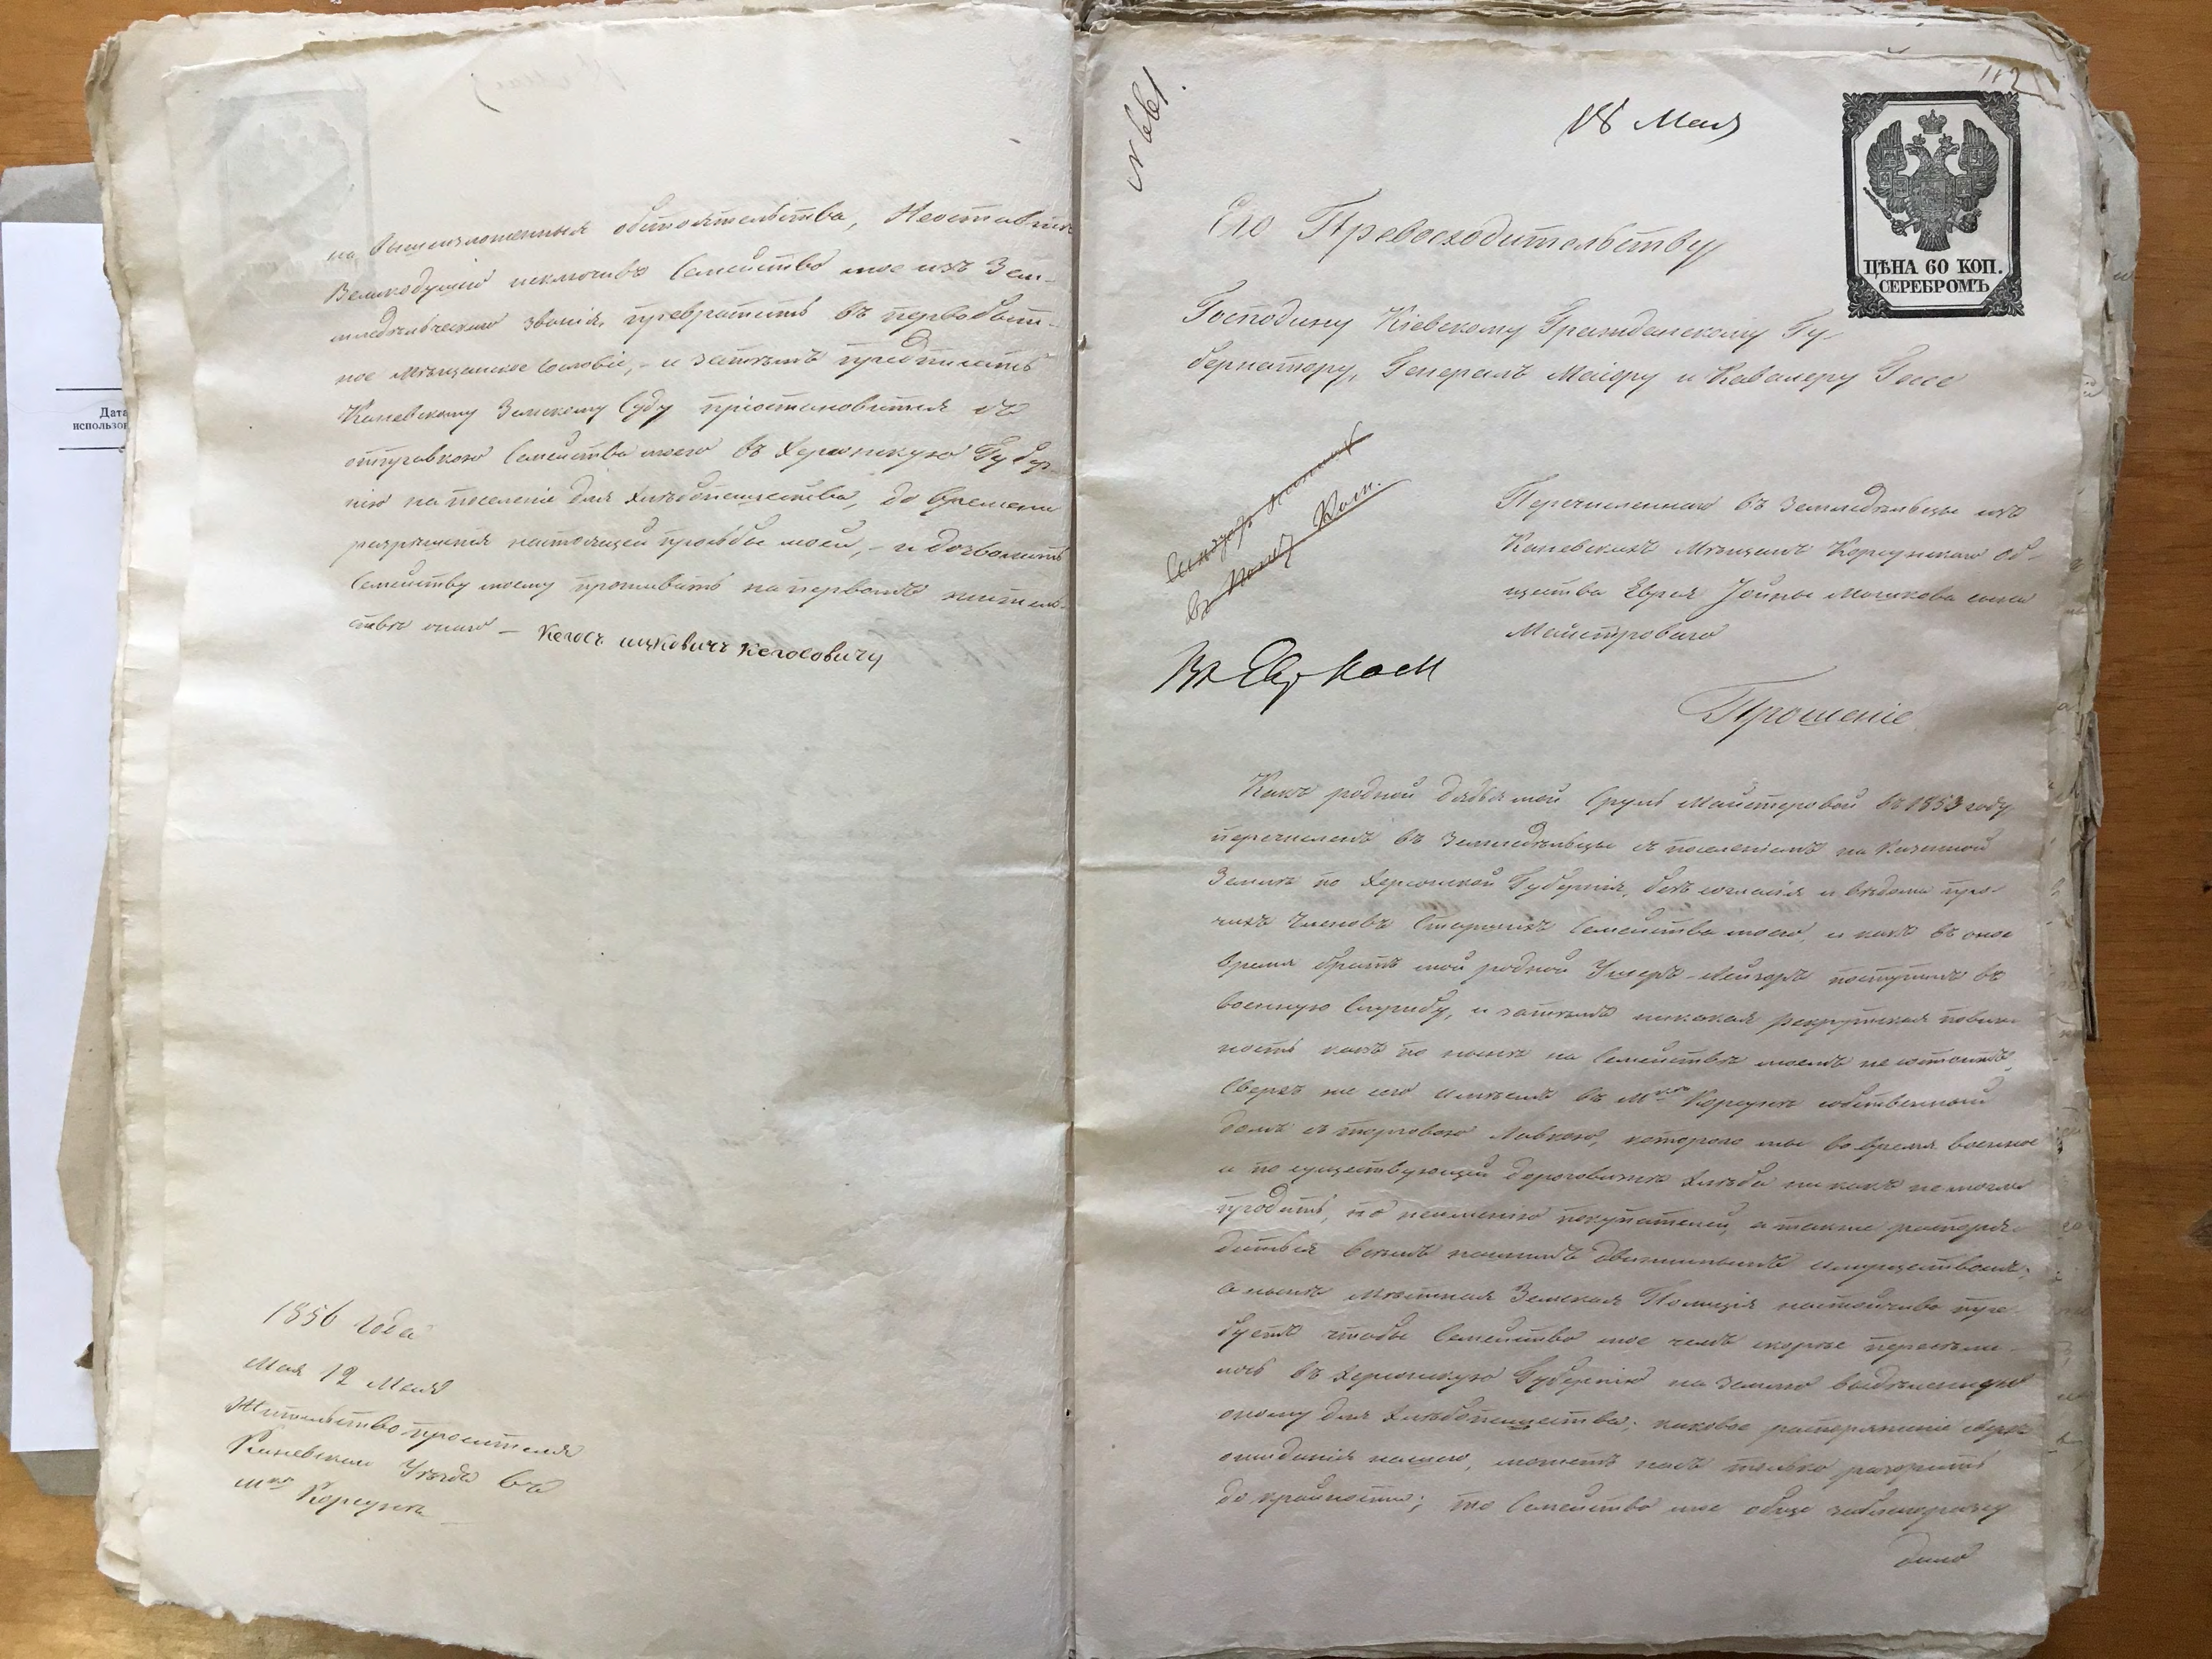 на вышеизложенныя обстоятельства,
Великодушно исключивъ Семейство мое изъ Зем-
ледѣльческаго званія, превратить въ первобыт-
ное Мѣщанское сословіе, - и затѣмъ предписать
Каневскому Земскому Суду пріостановится съ
отправкою Семейства моего въ Херсонскую Губер-
нію на поселеніе для хлѣбопашества, до времени
разрѣшенія настоящей просьбы моей, - и дозволить
Семейству моему проживать на первомъ житель-
ствѣ
1856 года
Мая 12 дня
Жительство просителя
Каневскаго Уѣзда въ
Мкѣ Корсунѣ
Дата
использов
№ 661.
18 Мая
ЦѢНА 60 КОП.
СЕРЕБРОМЪ
Его Превосходительству
Господину Кіевскому Гражданскому Гу-
бернатору, Генералъ Маіору и Кавалеру Гессе
Перечисленнаго въ Земледѣльцы изъ
Каневскихъ Мѣщанъ Корсунскаго Об-
щества Еврея Іойны Мошкова сына
Майстроваго
Прошеніе
Какъ родной дядя мой Сруль Майстеровой въ 1853 году
перечисленъ въ Земледѣльцы съ поселеніемъ на Казенной
Землѣ по Херсонской Губерніи, безъ согласія и вѣдома про-
чихъ Членовъ Старшихъ Семейства моего, и какъ въ оное
время братъ мой родной поступилъ въ
военную Службу, и затѣмъ никакая рекрутская повин-
ность на Семействѣ моемъ не состоитъ,
Сверхъ же сего имѣемъ въ Мкѣ Корсунѣ собственный
домъ съ торговою Лавкою, котораго мы во время военное
и по существующей дороговизнѣ хлѣба ни какъ не могли
продать, по неимѣнію покупателей, а также распоря-
диться всѣмъ нашимъ движимымъ имуществомъ;
а нынѣ Мѣстная Земская Полиція настойчиво тре-
буетъ чтобы Семейство мое чемъ скорѣе пересели-
лось въ Херсонскую Губернію на Землю выдѣленную
оному для хлѣбопашества; каковое распоряженіе сверхъ
ожиданія нашего, можетъ насъ только разорить
до крайности; то Семейство мое